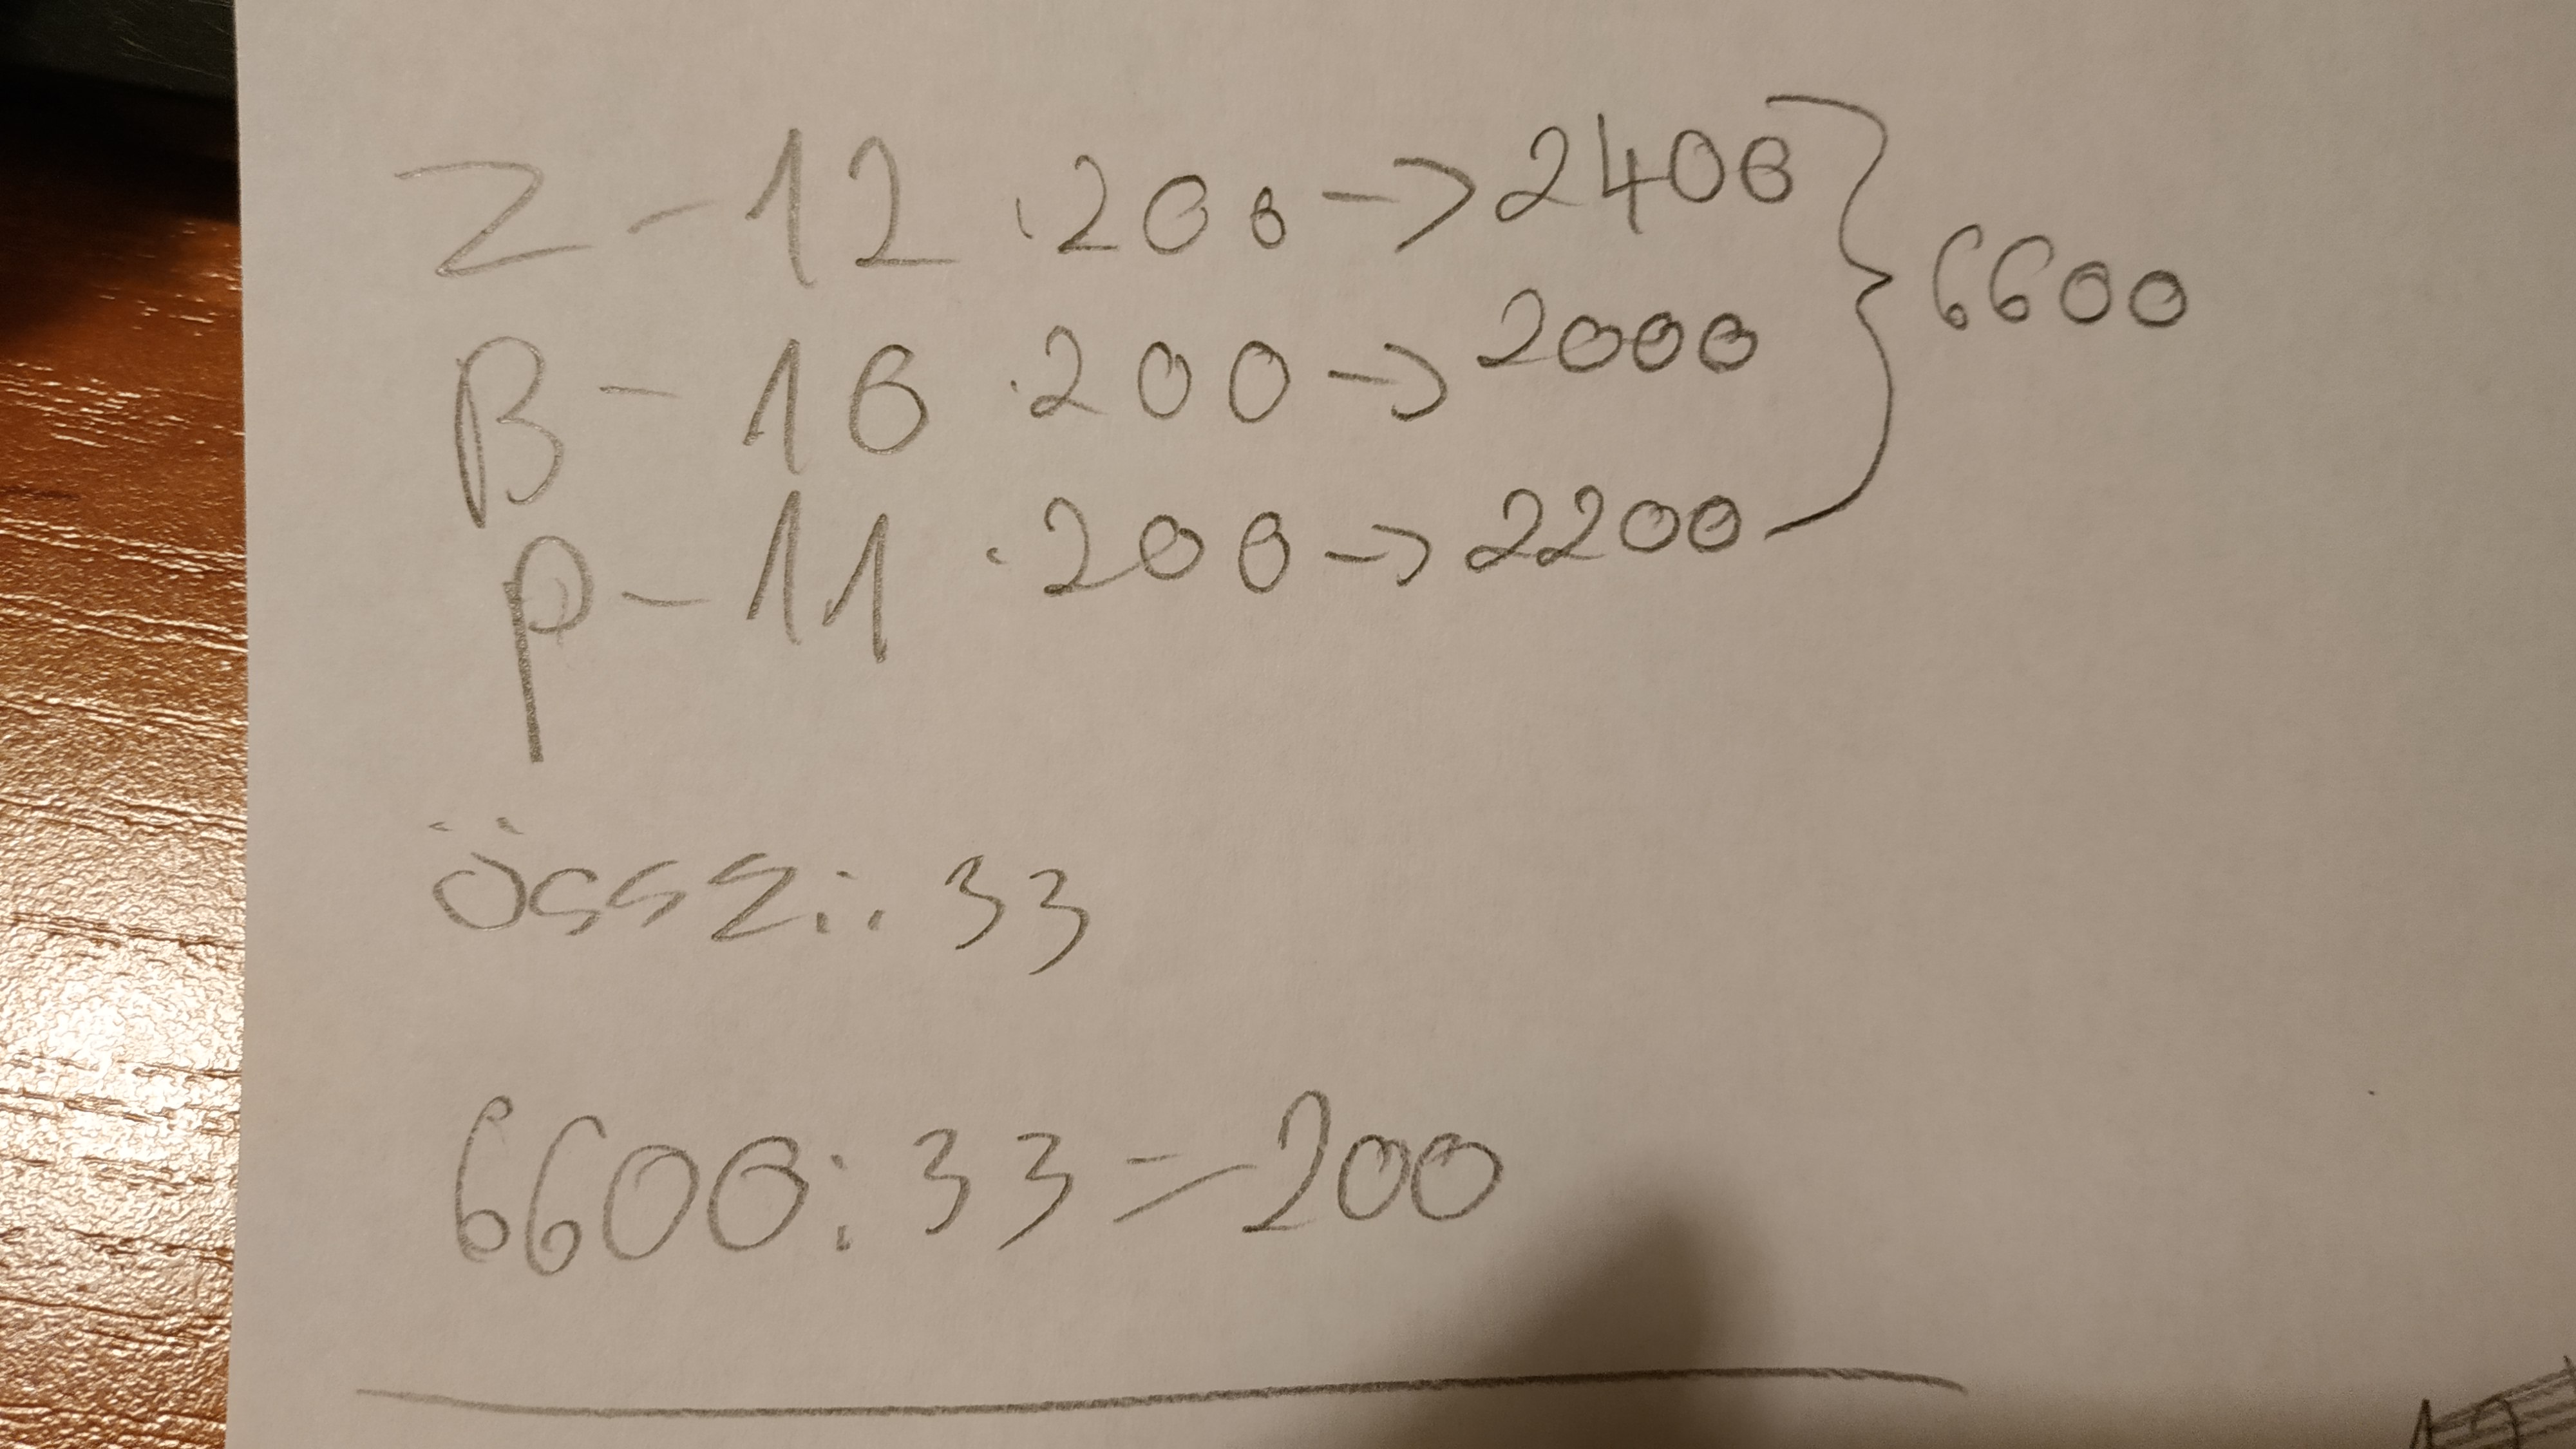 Z - 12 · 200 -> 2400
B - 10 · 200 -> 2000 } 6600
P - 11 · 200 -> 2200
Össz.: 33
6600 : 33 = 200